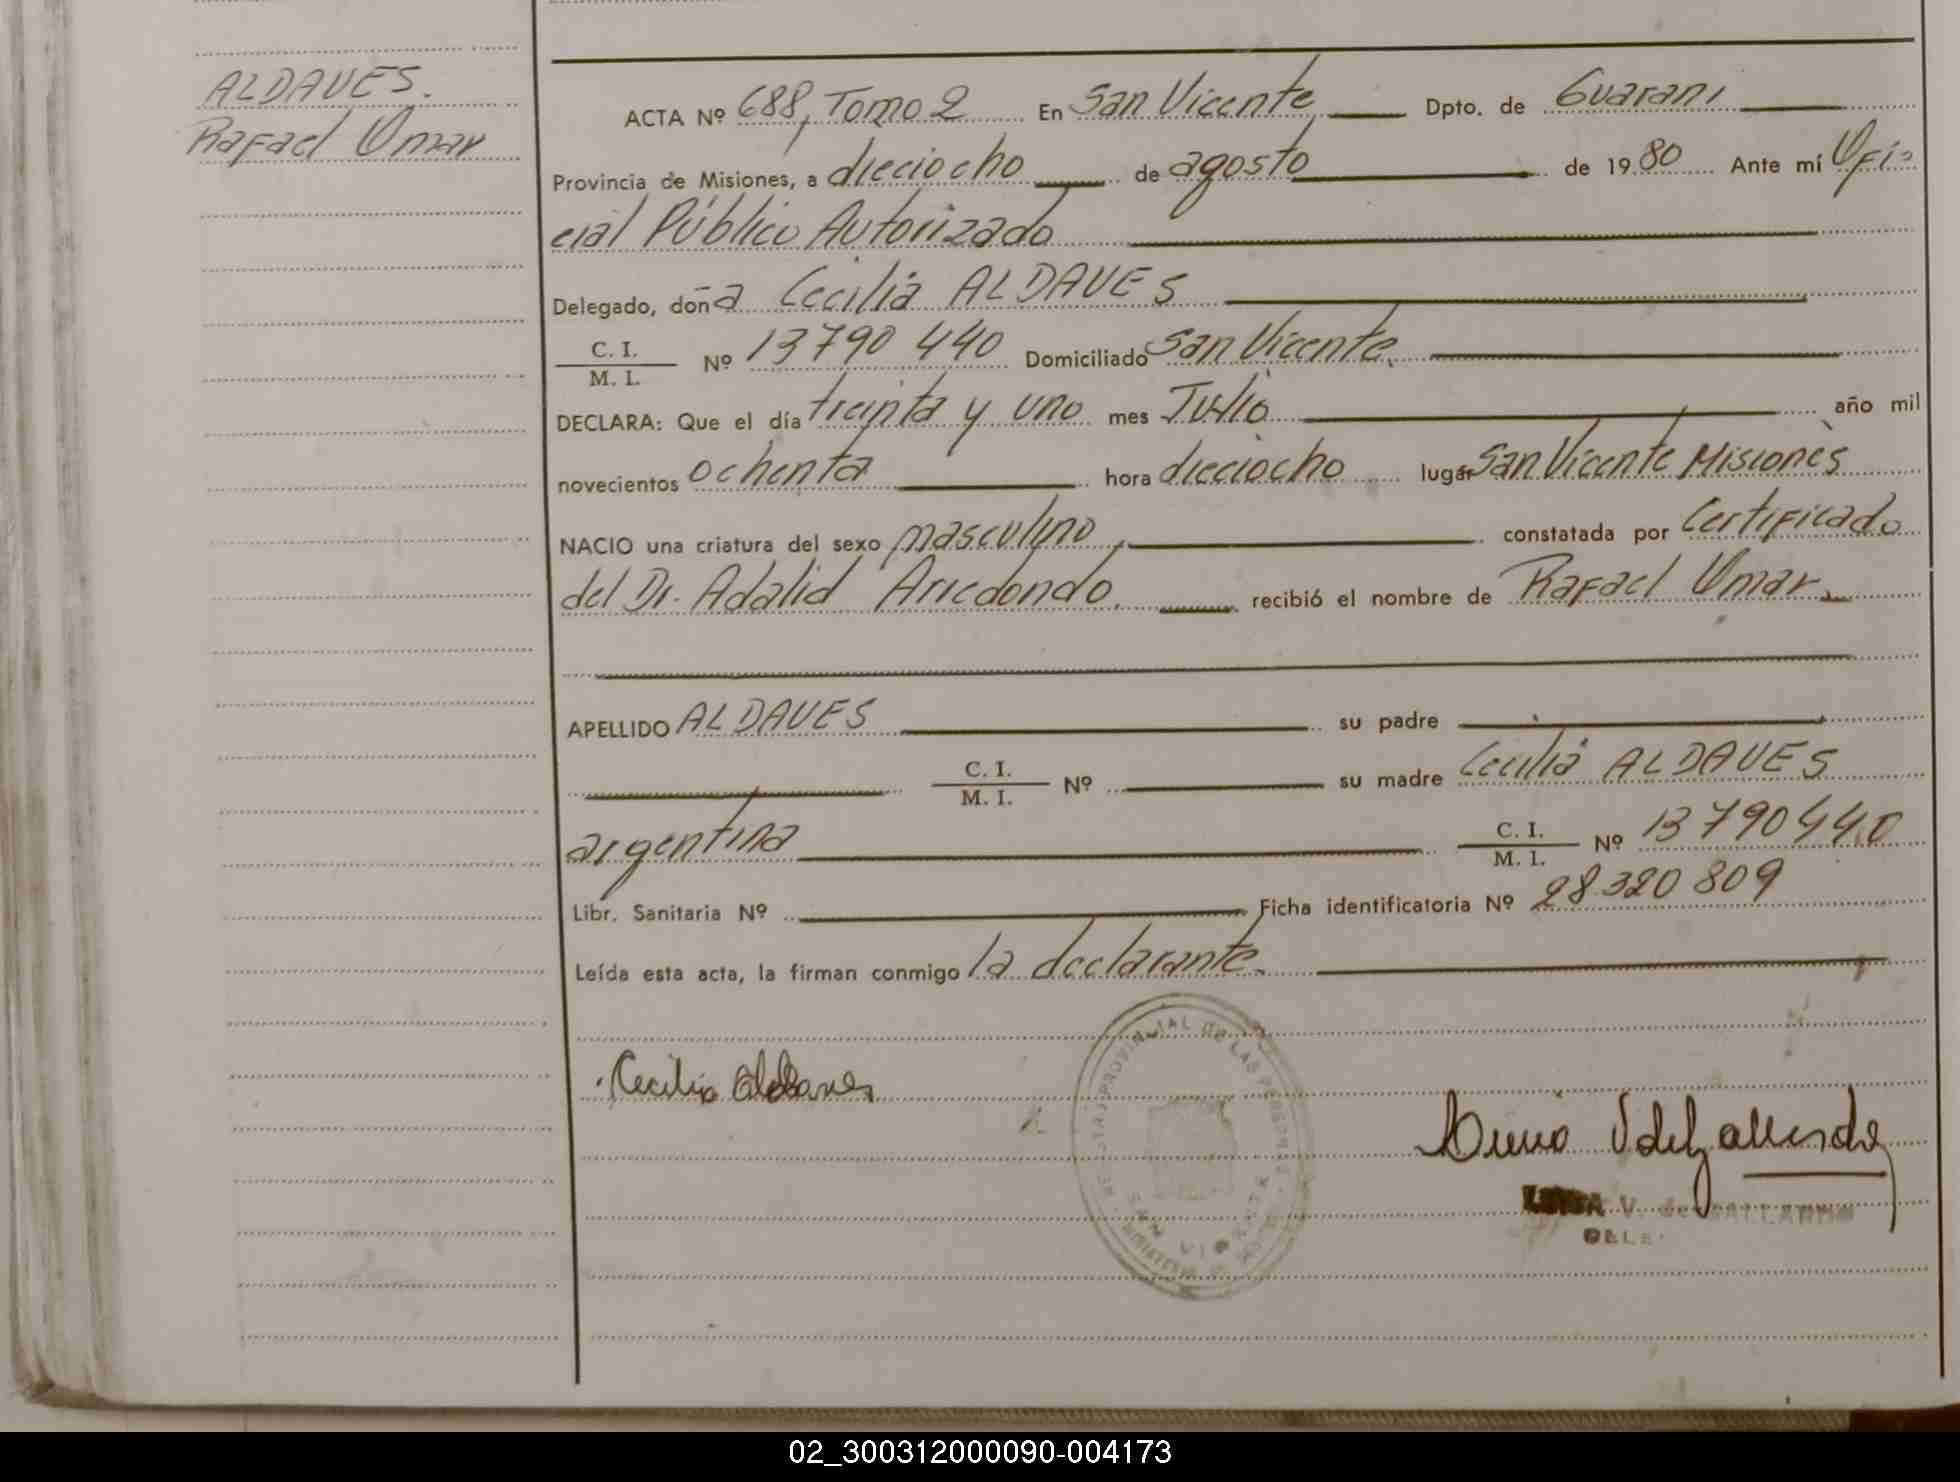 ALDAVES.
Rafael Omar
ACTA Nº 688, Tomo 2 En San Vicente Dpto. de Guarani
Provincia de Misiones, a dieciocho de agosto de 1980 Ante mí Ofi-
cial Público Autorizado
Delegado, doña Cecilia ALDAVES
C. I.
M. I. Nº 13790 440 Domiciliado San Vicente.
DECLARA: Que el día treinta y uno mes Julio año mil
novecientos ochenta hora dieciocho lugar San Vicente Misiones
NACIO una criatura del sexo masculino, constatada por Certificado
del Dr. Adalid Arredondo. recibió el nombre de Rafael Omar
APELLIDO ALDAVES su padre
C. I.
M. I. Nº su madre Cecilia ALDAVES
argentina C. I.
M. I. Nº 13790440
Libr. Sanitaria Nº Ficha identificatoria Nº 28320809
Leída esta acta, la firman conmigo la declarante.
Cecilia Aldaves
REGISTRO PROVINCIAL DE LAS PERSONAS
SAN VICENTE
V. de
02_300312000090-004173